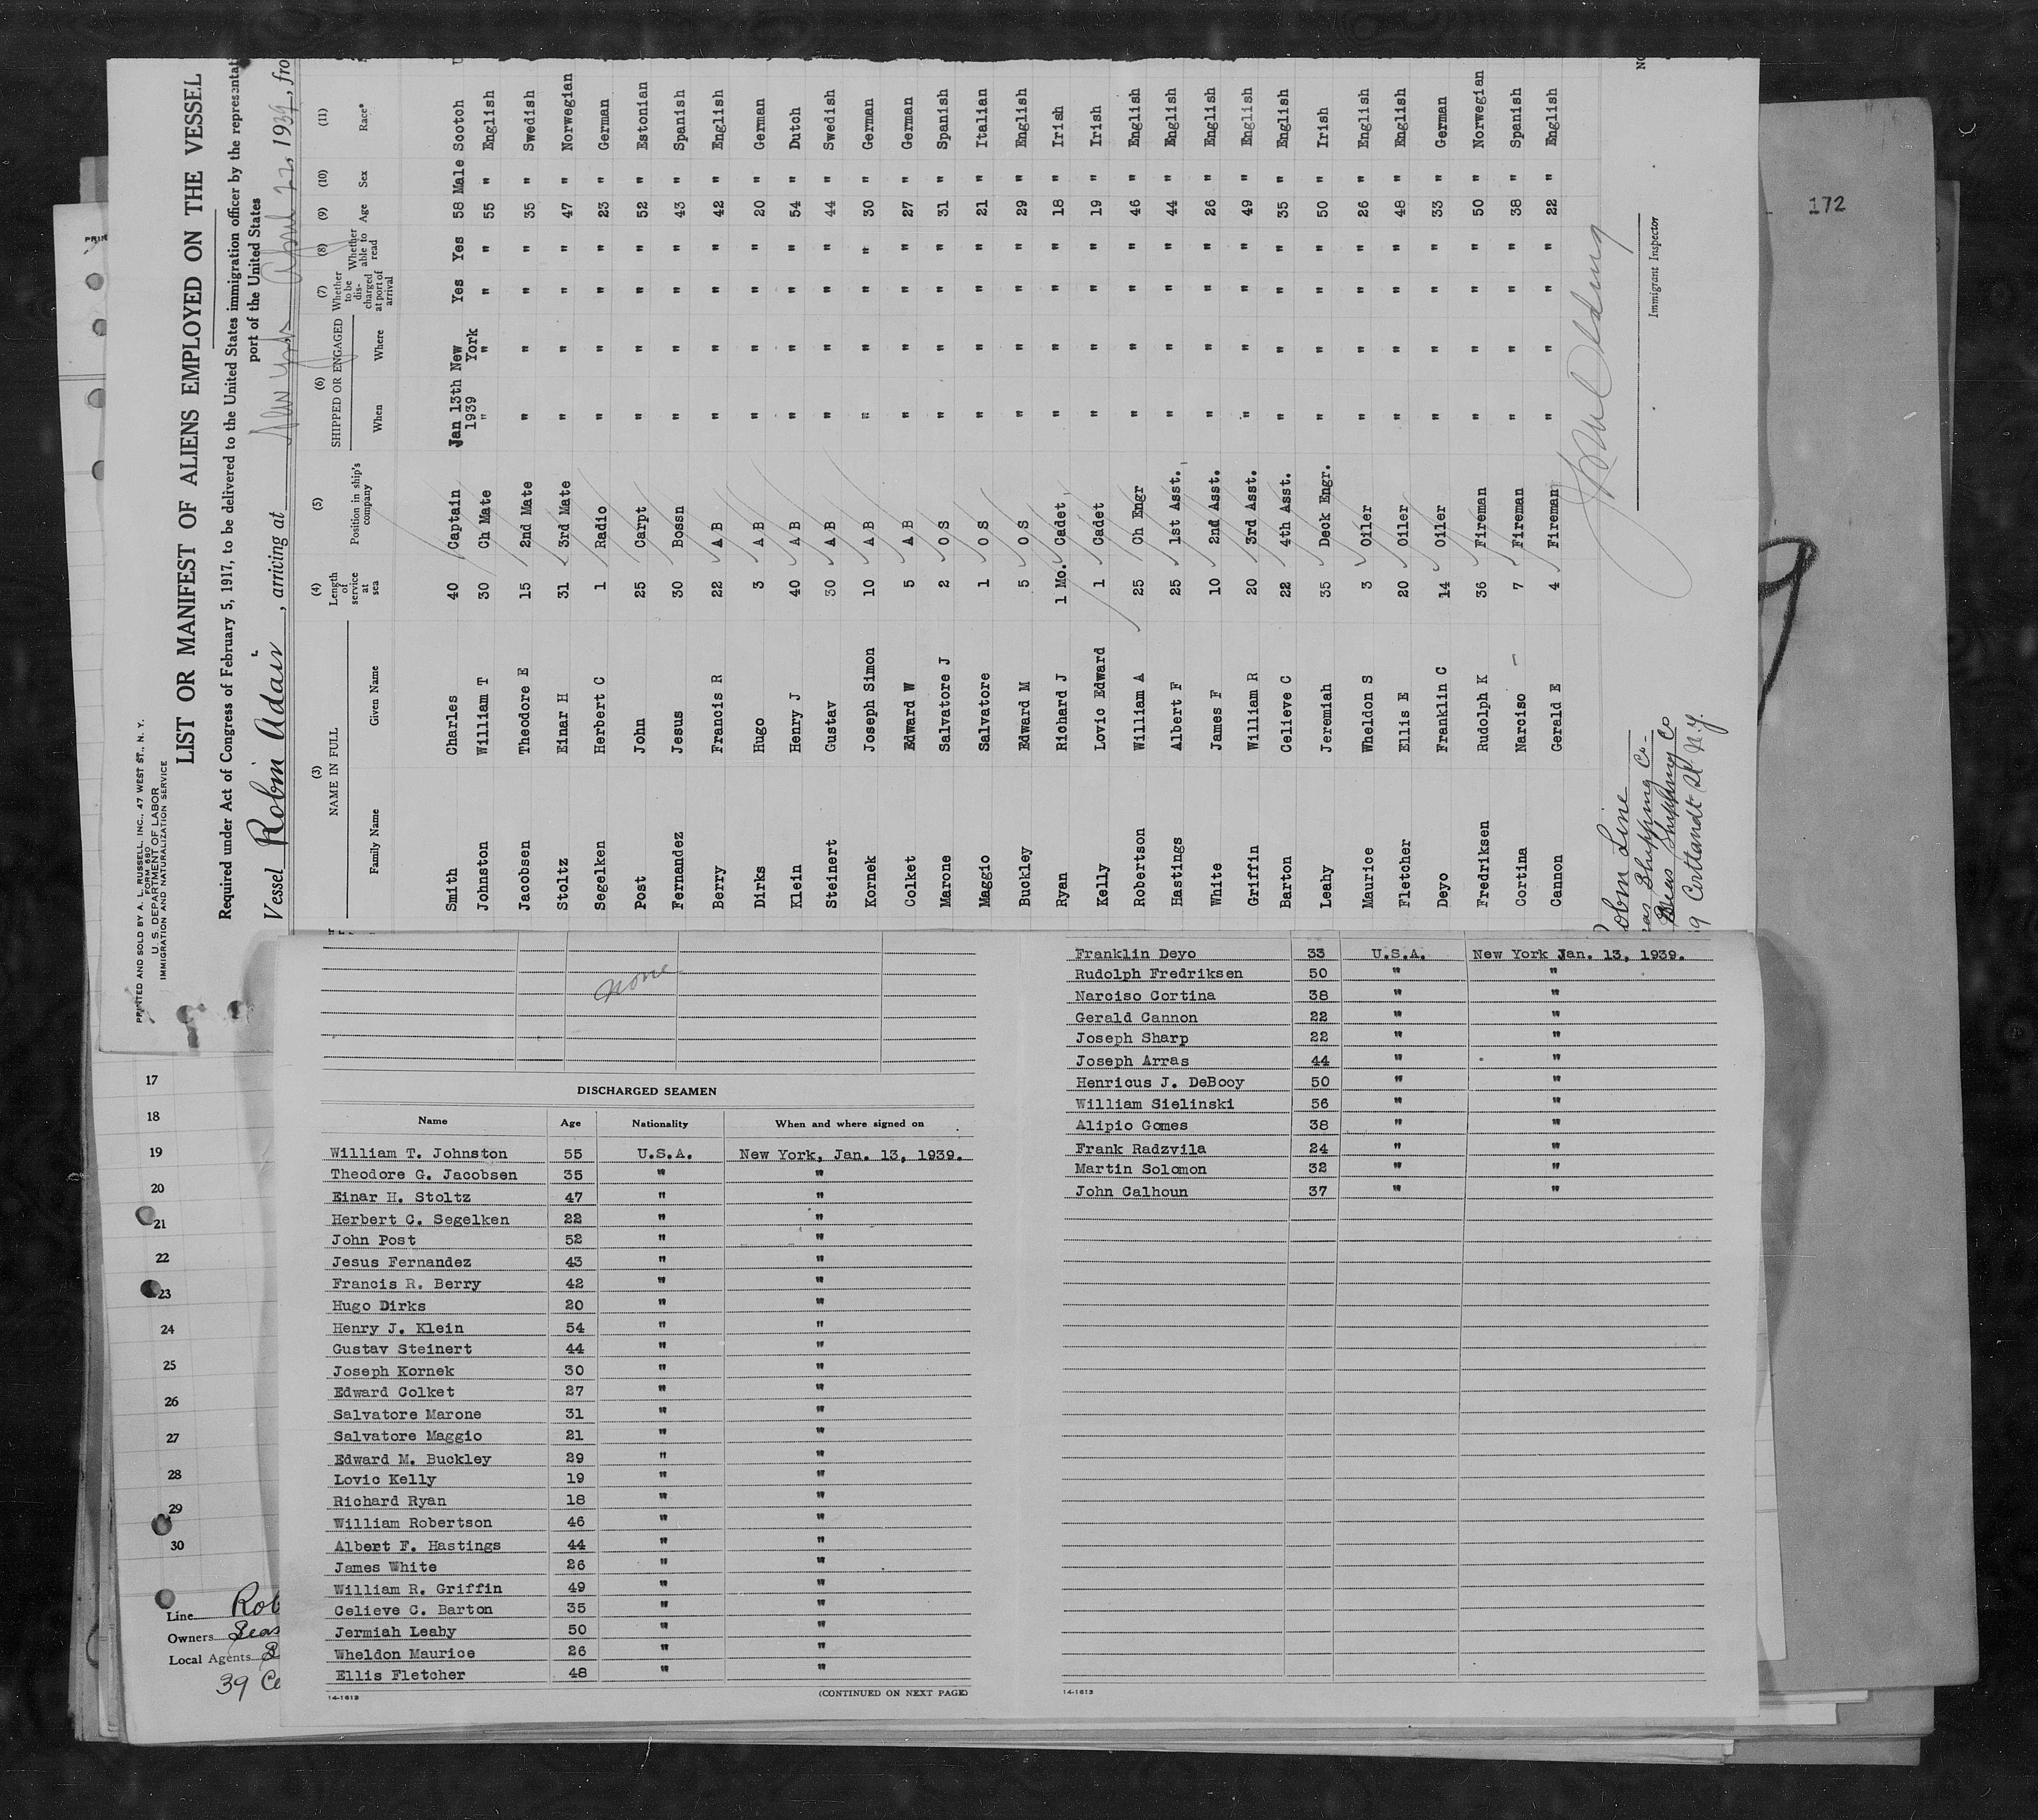 PRINTED AND SOLD BY A. L. RUSSELL, INC., 47 WEST ST., N. Y.
FORM 680
U. S. DEPARTMENT OF LABOR
IMMIGRATION AND NATURALIZATION SERVICE
LIST OR MANIFEST OF ALIENS EMPLOYED ON THE VESSEL
Required under Act of Congress of February 5, 1917, to be delivered to the United States immigration officer by the representat
port of the United States
Vessel Robin Adair, arriving at New York April 22, 1939, fro
(3) (4) (5) (6) (7) (8) (9) (10) (11)
NAME IN FULL Length of service at sea Position in ship's company SHIPPED OR ENGAGED Whether to be discharged at port of arrival Whether able to read Age Sex Race*
Family Name Given Name When Where
Smith Charles 40 Captain Jan 13th 1939 New York Yes Yes 58 Male Scotch
Johnston William T 30 Ch Mate " " " " 55 " English
Jacobsen Theodore E 15 2nd Mate " " " " 35 " Swedish
Stoltz Einar H 31 3rd Mate " " " " 47 " Norwegian
Segelken Herbert C 1 Radio " " " " 23 " German
Post John 25 Carpt " " " " 52 " Estonian
Fernandez Jesus 30 Bossn " " " " 43 " Spanish
Berry Francis R 22 A B " " " " 42 " English
Dirks Hugo 3 A B " " " " 20 " German
Klein Henry J 40 A B " " " " 54 " Dutch
Steinert Gustav 30 A B " " " " 44 " Swedish
Kornek Joseph Simon 10 A B " " " " 30 " German
Colket Edward W 5 A B " " " " 27 " German
Marone Salvatore J 2 O S " " " " 31 " Spanish
Maggio Salvatore 1 O S " " " " 21 " Italian
Buckley Edward M 5 O S " " " " 29 " English
Ryan Richard J 1 Mo. Cadet " " " " 18 " Irish
Kelly Lovic Edward 1 Cadet " " " " 19 " Irish
Robertson William A 25 Ch Engr " " " " 46 " English
Hastings Albert F 25 1st Asst. " " " " 44 " English
White James F 10 2nd Asst. " " " " 26 " English
Griffin William R 20 3rd Asst. " " " " 49 " English
Barton Celieve C 22 4th Asst. " " " " 35 " English
Leahy Jeremiah 35 Deck Engr. " " " " 50 " Irish
Maurice Wheldon S 3 Oiler " " " " 26 " English
Fletcher Ellis E 20 Oiler " " " " 48 " English
Deyo Franklin C 14 Oiler " " " " 33 " German
Fredriksen Rudolph K 36 Fireman " " " " 50 " Norwegian
Cortina Narciso - 7 Fireman " " " " 38 " Spanish
Cannon Gerald E 4 Fireman " " " " 22 " English
obin Line
eas Shipping Co-
Seas Shipping Co
9 Cortlandt St N.Y.
Immigrant Inspector
NO
172
PRIN
none
DISCHARGED SEAMEN
Name Age Nationality When and where signed on
William T. Johnston 55 U.S.A. New York, Jan. 13, 1939.
Theodore G. Jacobsen 35 " "
Einar H. Stoltz 47 " "
Herbert C. Segelken 22 " "
John Post 52 " "
Jesus Fernandez 43 " "
Francis R. Berry 42 " "
Hugo Dirks 20 " "
Henry J. Klein 54 " "
Gustav Steinert 44 " "
Joseph Kornek 30 " "
Edward Colket 27 " "
Salvatore Marone 31 " "
Salvatore Maggio 21 " "
Edward M. Buckley 29 " "
Lovic Kelly 19 " "
Richard Ryan 18 " "
William Robertson 46 " "
Albert F. Hastings 44 " "
James White 26 " "
William R. Griffin 49 " "
Celieve C. Barton 35 " "
Jermiah Leahy 50 " "
Wheldon Maurice 26 " "
Ellis Fletcher 48 " "
14-1613 (CONTINUED ON NEXT PAGE)
Franklin Deyo 33 U.S.A. New York Jan. 13, 1939.
Rudolph Fredriksen 50 " "
Narciso Cortina 38 " "
Gerald Cannon 22 " "
Joseph Sharp 22 " "
Joseph Arras 44 " "
Henricus J. DeBooy 50 " "
William Sielinski 56 " "
Alipio Gomes 38 " "
Frank Radzvila 24 " "
Martin Solomon 32 " "
John Calhoun 37 " "
14-1613
17
18
19
20
21
22
23
24
25
26
27
28
29
30
Line Rob
Owners Seas
Local Agents S
39 Co